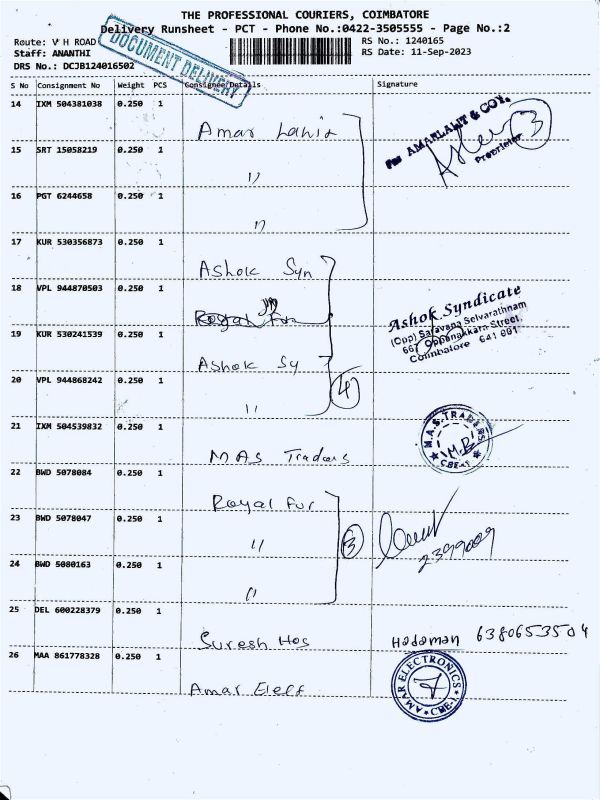 THE PROFESSIONAL COURIERS, COIMBATORE
Delivery Runsheet - PCT - Phone No.:0422-3505555 - Page No.:2
Route: V H ROAD
RS No.: 1240165
Staff: ANANTHI
RS Date: 11-Sep-2023
DRS No.: DCJB124016502
DOCUMENT DELIVERY
S No Consignment No Weight PCS Consignee Details Signature
14 IXM 504381038 0.250 1
Amar
For AMARLALIT & COY.
Proprietor
3
15 SRT 15058219 0.250 1
"
16 PGT 6244658 0.250 1
"
17 KUR 530356873 0.250 1
Ashok Syn
18 VPL 944870503 0.250 1
Ashok Syndicate
(Opp) Saravana Selvarathnam
667 Oppanakkara Street,
Coimbatore 641 001
19 KUR 530241539 0.250 1
Ashok Sy
20 VPL 944868242 0.250 1
" 4
21 IXM 504539832 0.250 1
MAS Traders
M.A.S. TRADERS
CBE-1
22 BWD 5078084 0.250 1
Royal Fur
23 BWD 5078047 0.250 1
" 3
2399009
24 BWD 5080163 0.250 1
"
25 DEL 600228379 0.250 1
Suresh Hos
Hadaman 6380653504
26 MAA 861778328 0.250 1
Amar Elect
AMAR ELECTRONICS
CBE-1